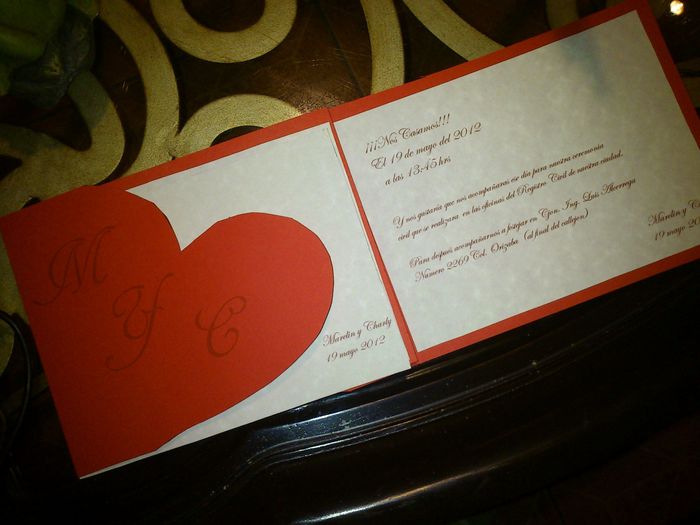 M
Y
C
Marelin y Charly
19 mayo 2012
¡¡¡Nos Casamos!!!
El 19 de mayo del 2012
a las 13:45 hrs
Y nos gustaría que nos acompañaras ese día para nuestra ceremonia
civil que se realizara en las oficinas del Registro Civil de nuestra ciudad.
Para depués acompañarnos a festejar en Gon. Ing. Luis Alcerrega
Número 2269 Col. Orizaba (al final del callejon)
Marelin y C
19 mayo 20